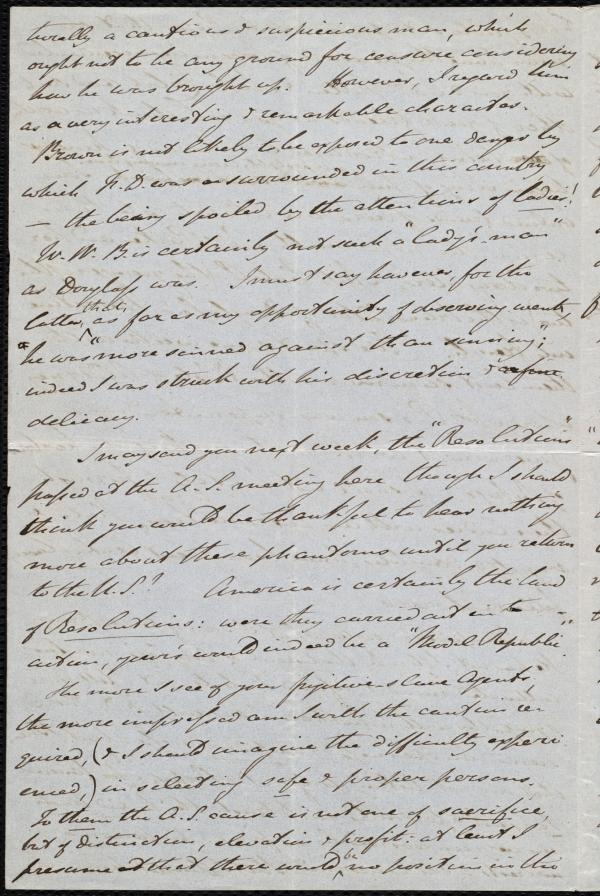 turally a cautious & suspicious man, which
ought not to be any ground for censure considering
how he was brought up. However, I regard him
as a very interesting & remarkable character.
Brown is not likely to be exposed to one danger by
which F. D. was so surrounded in this country
— the being spoiled by the attentions of ladies!
W. W. B. is certainly not such a "lady's-man"
as Douglass was. I must say however, for the
latter, that, as far as my opportunity of observing went,
"he was "more sinned against than sinning";
indeed I was struck with his discretion &
delicacy.
I may send you next week, the "Resolutions"
passed at the A. S. meeting here though I should
think you would be thankful to hear nothing
more about these phantoms until you return
to the U.S.! America is certainly the land
of Resolutions: were they carried out into
action, yours would indeed be a "Model Republic".
The more I see of your fugitive slave Agents,
the more impressed am I with the caution re-
quired, (& I should imagine the difficulty experi-
enced,) in selecting safe & proper persons.
To them the A. S. cause is not one of sacrifice,
but of distinction, elevation & profit: at least I
presume that there would be no position in this